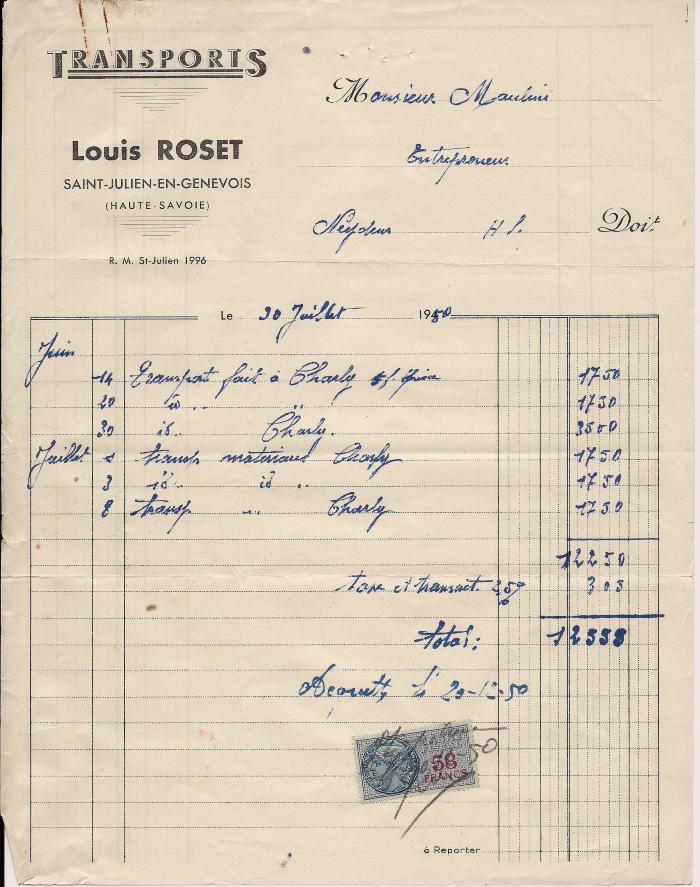 TRANSPORTS
Louis ROSET
SAINT-JULIEN-EN-GENEVOIS
(HAUTE-SAVOIE)
R. M. St-Julien 1996
Monsieur Maulini
Entrepreneur
Neydens H S. Doit
Le 30 Juillet 1950
Juin
14 transport fait à Charly 1750
20 id .. .. 1750
30 id .. Charly. 3500
Juillet 1 transp materiaux Charly 1750
3 id .. id .. 1750
8 transp .. Charly 1750
12250
taxe et transact. 305
Total: 12555
Acquitté le 20-12-50
58
FRANCS
50
à Reporter